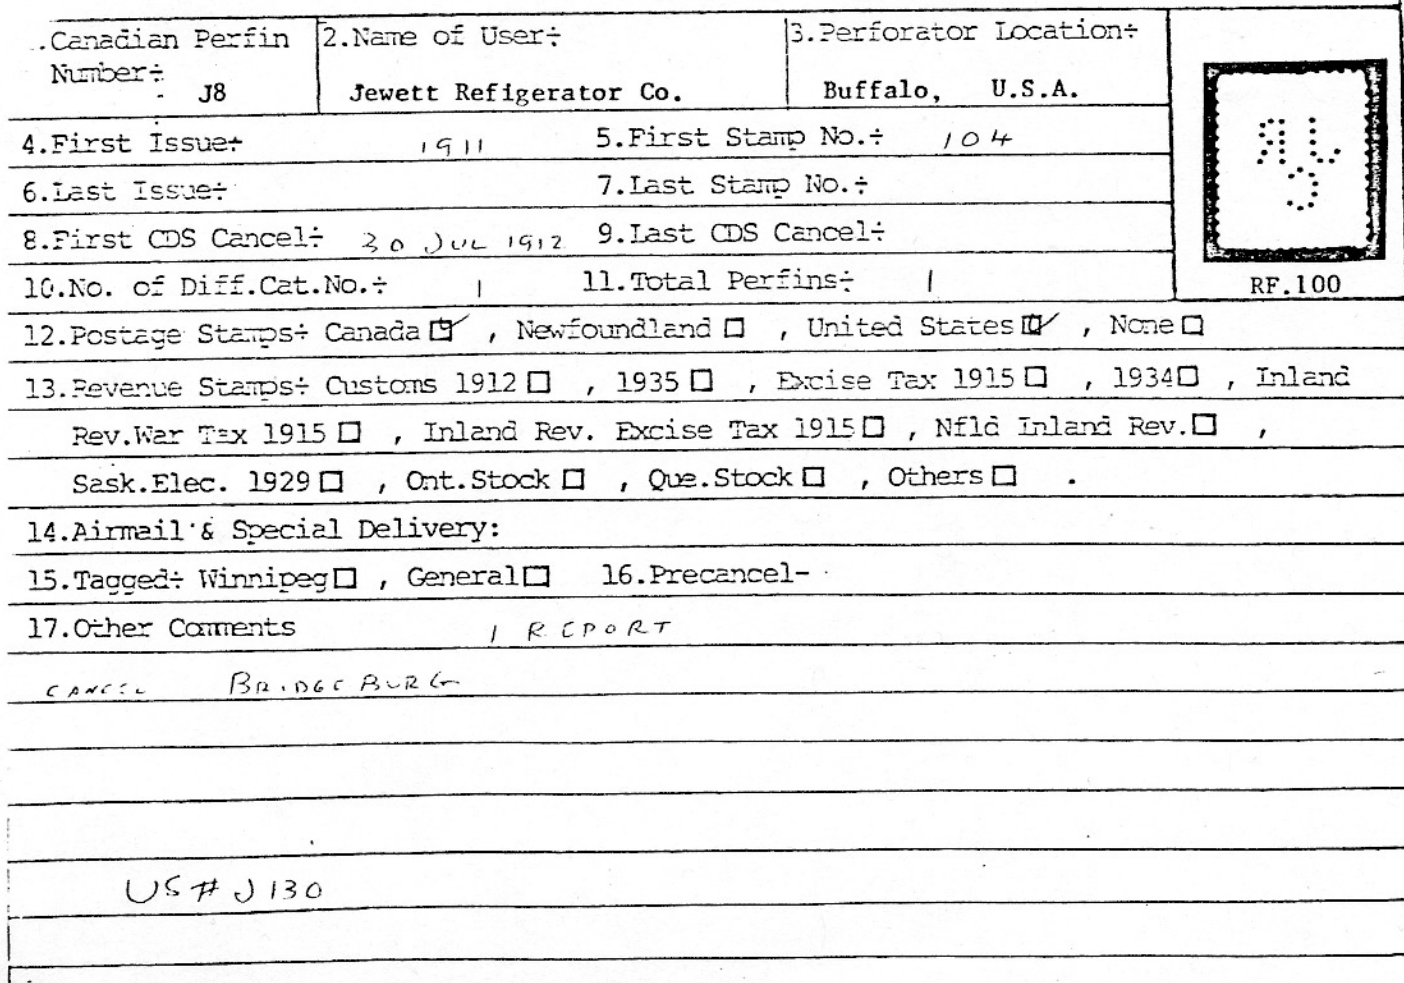 .Canadian Perfin Number÷ J8
2.Name of User÷ Jewett Refigerator Co.
3.Perforator Location÷ Buffalo, U.S.A.
4.First Issue÷ 1911 5.First Stamp No.÷ 104
6.Last Issue÷ 7.Last Stamp No.÷
8.First CDS Cancel÷ 30 JUL 1912 9.Last CDS Cancel÷
10.No. of Diff.Cat.No.÷ 1 11.Total Perfins÷ 1
RF.100
12.Postage Stamps÷ Canada ☑ , Newfoundland ☐ , United States ☑ , None ☐
13.Revenue Stamps÷ Customs 1912 ☐ , 1935 ☐ , Excise Tax 1915 ☐ , 1934 ☐ , Inland
Rev.War Tax 1915 ☐ , Inland Rev. Excise Tax 1915 ☐ , Nfld Inland Rev. ☐ ,
Sask.Elec. 1929 ☐ , Ont.Stock ☐ , Que.Stock ☐ , Others ☐ .
14.Airmail & Special Delivery:
15.Tagged÷ Winnipeg ☐ , General ☐ 16.Precancel-
17.Other Comments 1 REPORT
CANCEL BRIDGEBURG
US # J130